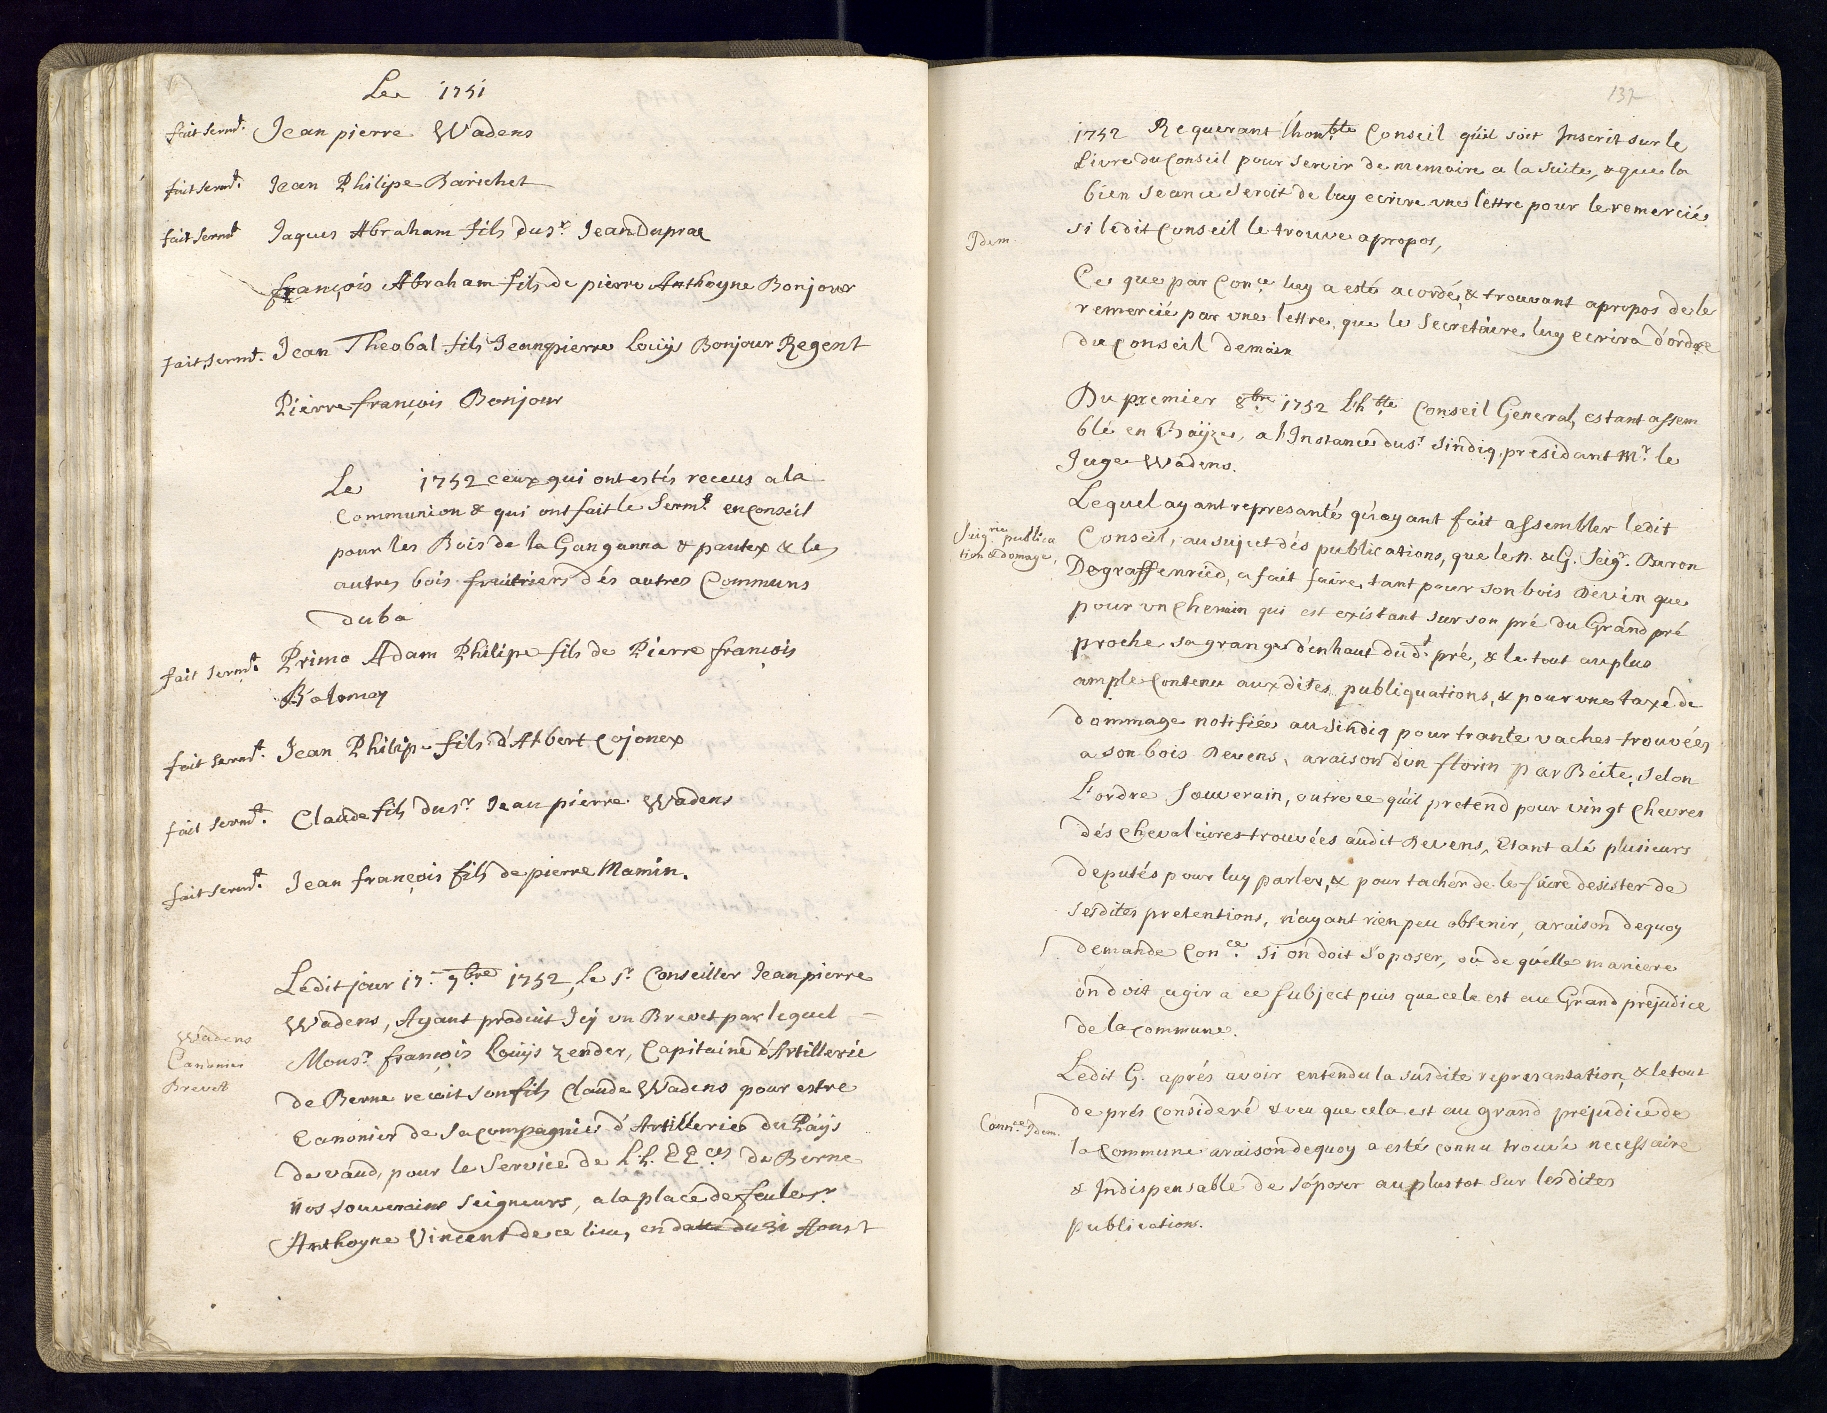 Le 1751
fait Sermt. Jean pierre Wadens
fait Sermt. Jean Philipe Barichet
fait Sermt Jaques Abraham fils du sr. Jean Duprae
françois Abraham fils de pierre Anthoyne Bonjour
fait Sermt. Jean Theobal fils Jean pierre Louÿs Bonjour Regent
Pierre françois Bonjour
Le 1752 ceux qui ont estés receus a la
Communion & qui ont fait le Sermt. en Conseil
pour les Bois de la Ganganna & pautex & les
autres bois fruitiers dés autres Communs
du ba
fait Sermt. Primo Adam Philipe fils de Pierre françois
Balomay
fait Sermt. Jean Philipe fils d'Albert Cojonex
fait Sermt. Claude fils du sr. Jean pierre Wadens
fait Sermt. Jean françois fils de pierre Mamin.
Ledit jour 17e 7bre 1752, le sr. Conseiller Jean pierre
Wadens, Ayant produit Icÿ un Brevet par lequel
Wadens
Canonier
Brevet
Monsr. françois Louÿs Zender, Capitaine d'Artillerie
de Berne recoit son fils Claude Wadens pour estre
Canonier de sa compagnies d'Artilleries du Päÿs
de vaud, pour le Service de L.L. E E ces de Berne
nos souverains Seigneurs, a la place de feu le sr.
Anthoyne Vincent de ce lieu, en date du 31 Aoust
137
1752 Requerant l'honble Conseil qu'il soit Inscrit sur le
Livre du Conseil pour servir de memoire a la suite, & que la
bien seance seroit de luy ecrire une lettre pour le remercié
si ledit Conseil le trouve apropos,
Idem.
Ce que par Conce luy a esté acordé, & trouvant apropos de le
remercié par une lettre que le Secretaire luy ecrira d'ordre
du Conseil demain
Du premier 8bre 1752 L'hble Conseil General, estant assem
blé en Baÿze, a l'Instance du sr Sindiq, presidant Mr. le
Juge Wadens.
Lequel ayant represanté qu'ayant fait assembler ledit
Seigrie publica
tion & domage,
Conseil, au sujet dés publications, que le N. & G. Seigr. Baron
Degraffenried, a fait faire, tant pour son bois Devin que
pour un Chemin qui est existant sur son pré du Grand pré
proche sa grange d'enhaut dudt. pré, & le tout au plus
ample Contenu auxdites publiquations, & pour une taxe de
dommage notifiée au Sindiq pour trante vaches trouvées
a son bois Devens, a raison d'un florin par Béite, selon
L'ordre Souverain, outre ce qu'il pretend pour vingt Chevres
dés Chevalaires trouvées audit Devens, Etant alé plusieurs
deputés pour luy parler, & pour tacher de le faire desister de
sesdites pretentions, n'ayant rien peu obtenir, a raison dequoy
demande Conce. si on doit S'oposer, où de quélle maniere
on doit agir a ce Subject puis que cele est au Grand prejudice
de la Commune.
Ledit G. aprés avoir entendu la susdite represantation, & le tout
de prés Consideré & veu que cela est au grand prejudice de
Connce. Idem.
la Commune a raison dequoy a estés connu trouvé necessaire
& Indispensable de s'oposer au plus tot sur lesdites
publications.